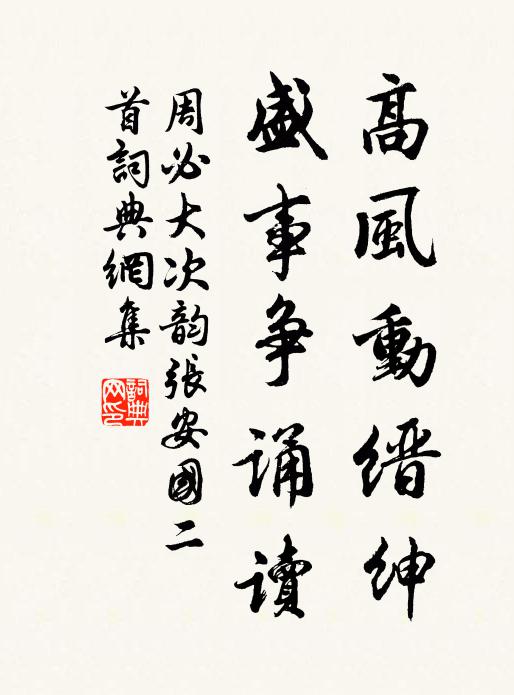 高風動缙紳
盛事争誦讀
周必大次韵張安國二
首詞典網集
詞典
网印